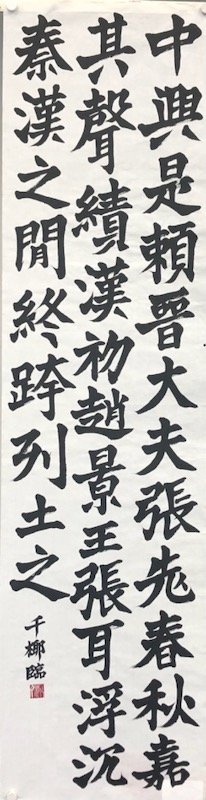 中興是賴晉大夫張老春秋嘉
其聲績漢初趙景王張耳浮沉
秦漢之間終跨列土之
千椰臨